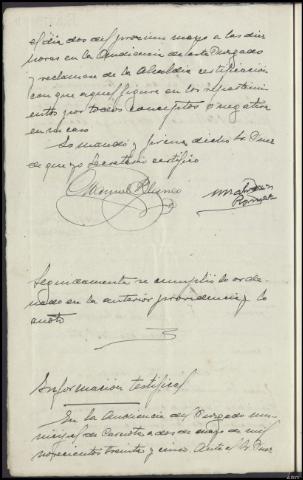 el dia dos del proximo mayo a las diez
horas en la Audiencia de este Juzgado
y reclamese de la Alcaldia certificación
con que aquel figura en los repartimi
entos por todos conceptos o negativa
en su caso
Lo mandó y firma dicho Sr Juez
de que yo Secretario certifico
Manuel Blanco
Seguidamente se cumplió lo orde-
nado en la anterior providencia y lo
anoto
Información testifical
En la Audiencia del Juzgado mu-
nicipal de a dos de mayo de mil
novecientos treinta y cinco. Ante el Sr Juez